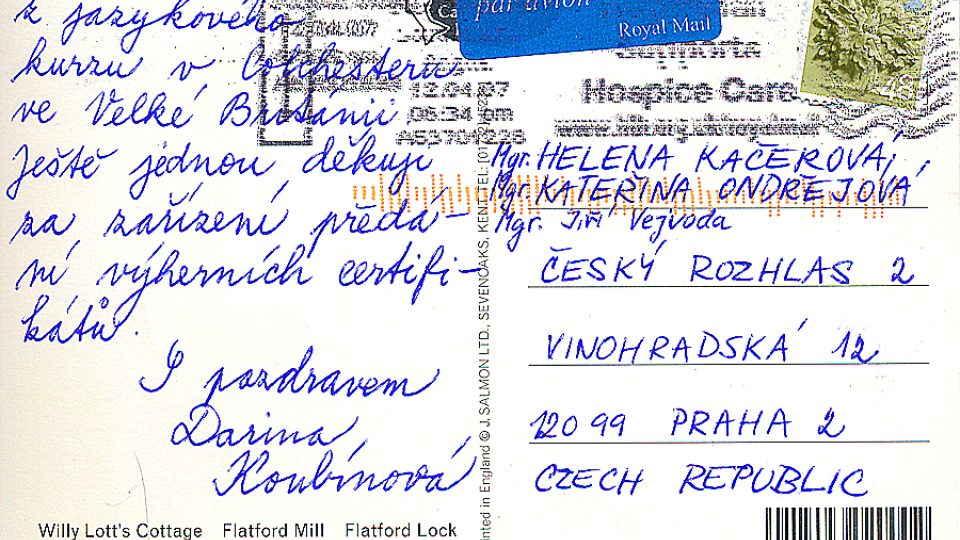 z jazykového
kurzu v Colchesteru
ve Velké Británii
Ještě jednou děkuji
za zařízení předá-
ní výherních certifi-
kátů.
S pozdravem
Darina
Koubínová
Willy Lott's Cottage Flatford Mill Flatford Lock
par avion
Royal Mail
48
Hospice Care
06:34 pm
Printed in England © J. SALMON LTD., SEVENOAKS, KENT. TEL:
Mgr. HELENA KAČEROVÁ,
Mgr. KATEŘINA ONDŘEJOVÁ
Mgr. Jiří Vejvoda
ČESKÝ ROZHLAS 2
VINOHRADSKÁ 12
120 99 PRAHA 2
CZECH REPUBLIC